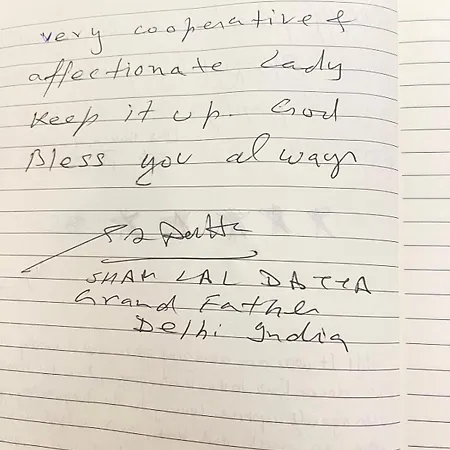 very cooperative &
affectionate Lady
Keep it up. God
Bless you always
S L Datta
SHAM LAL DATTA
Grand Father
Delhi India